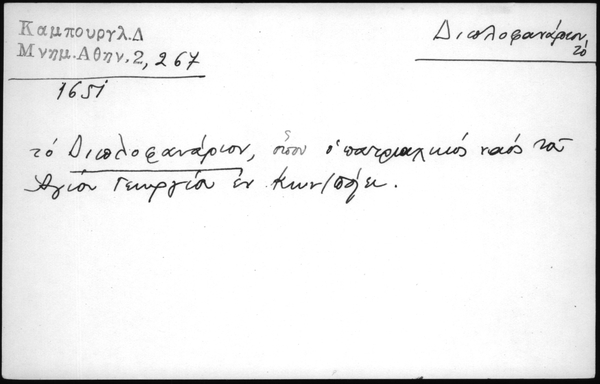 Καμπουργλ.Δ
Μνημ.Αθην.2, 267
1651
Διπλοφανάριον,
τό
τό Διπλοφανάριον, ὅπου ὁ πατριαρχικός ναός τοῦ
Ἁγίου Γεωργίου ἐν Κων/πόλει.